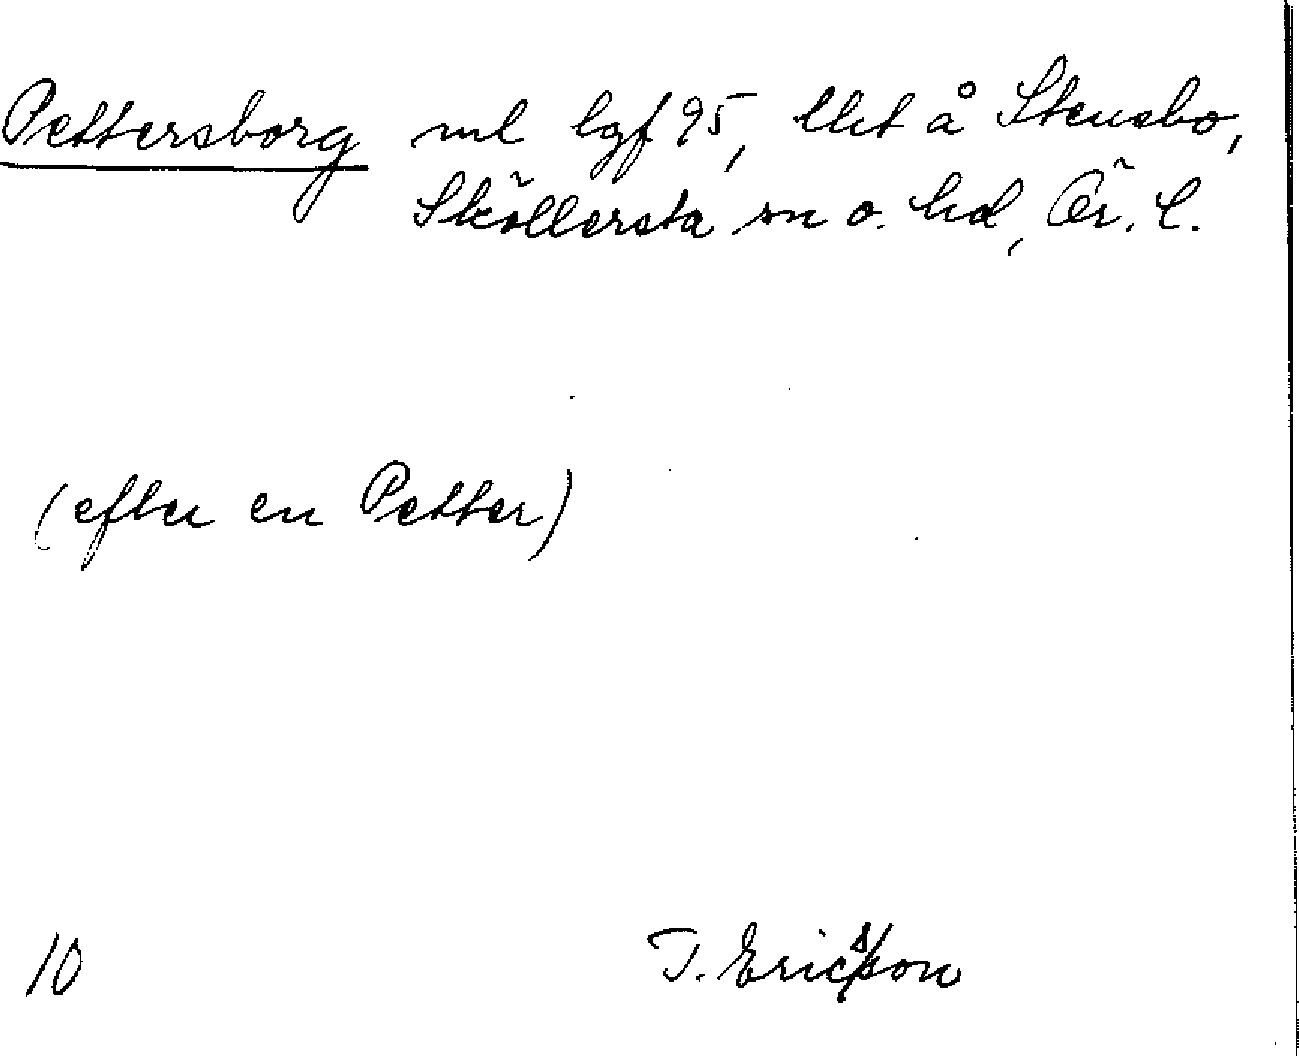 Pettersborg ml lgf 95, lht å Stensbo,
Sköllersta sn o. hd, Ör. l.
(efter en Petter)
10 T. Ericsson